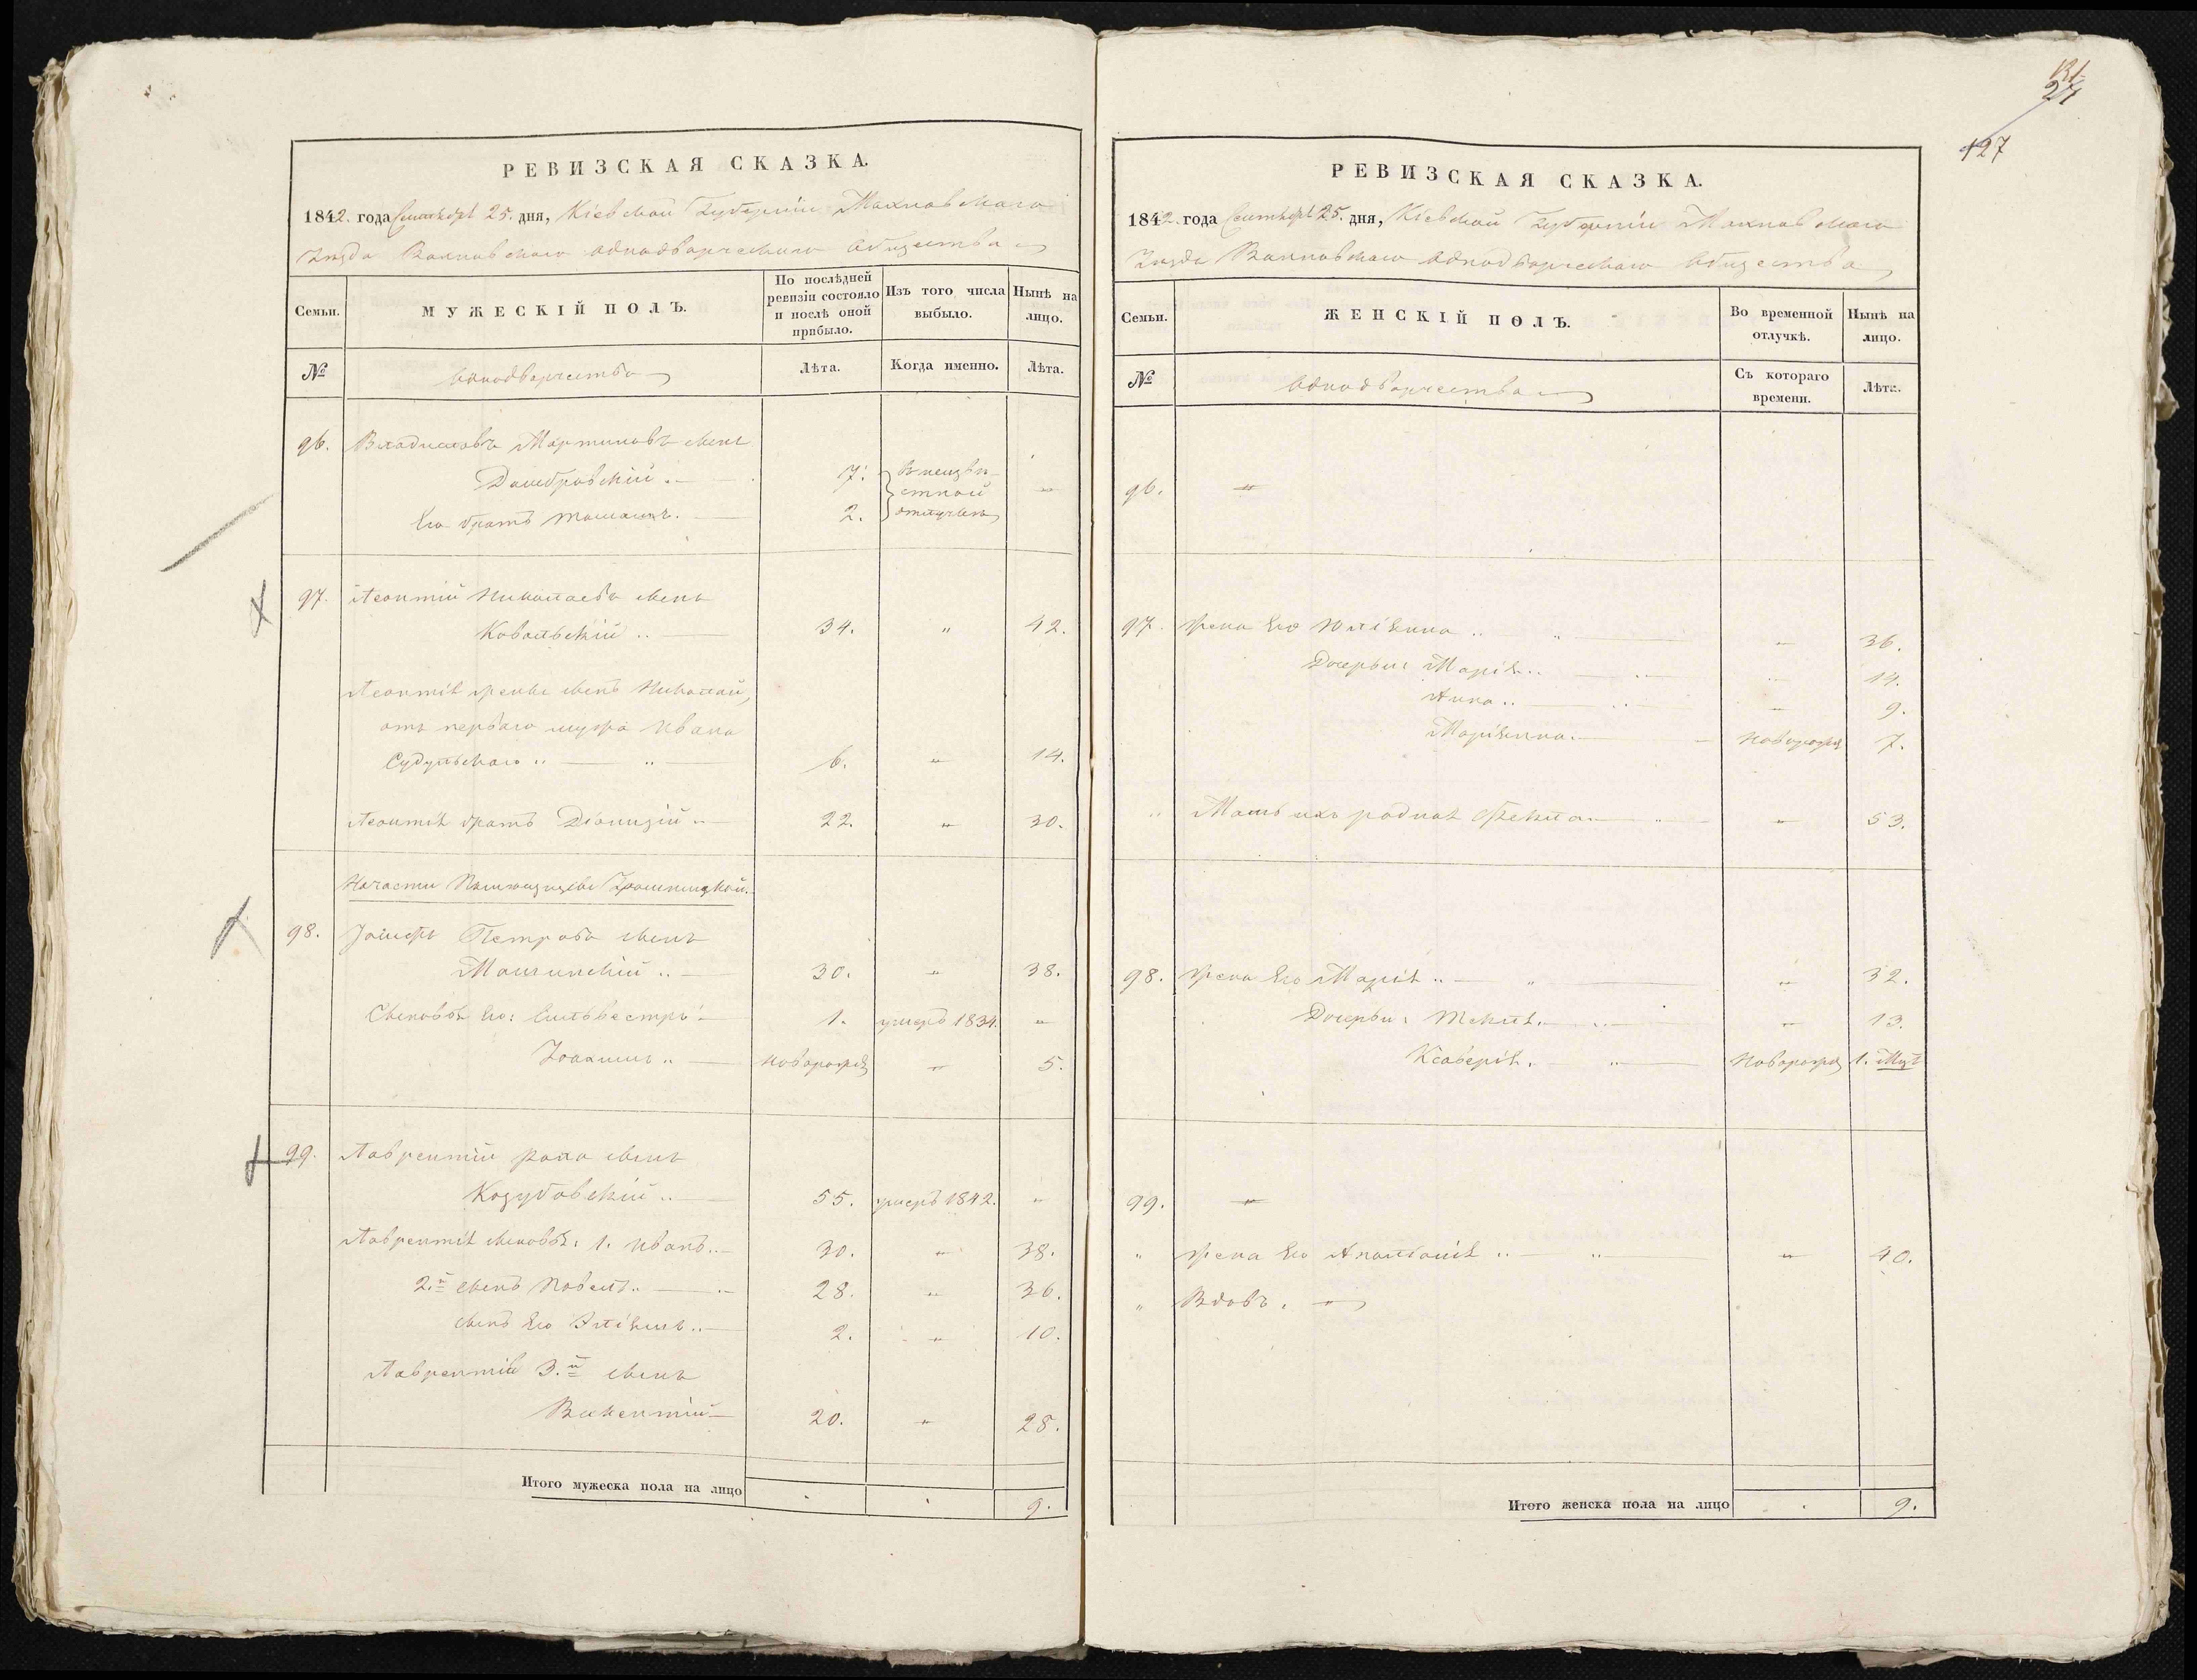 РЕВИЗСКАЯ СКАЗКА.
1842. года Сентября 25. дня, Кіевской Губерніи Махновскаго
Уезда Вахновскаго Однодворческаго Общества
Семьи.
МУЖЕСКІЙ ПОЛЪ.
По послѣдней ревизіи состояло и послѣ оной прибыло.
Изъ того числа выбыло.
Нынѣ на лицо.
№
Однодворчества
Лѣта.
Когда именно.
Лѣта.
96. Владиславъ Мартиновъ сынъ
Домбровскій .. 7. в неизвѣ-
стной "
Его братъ Томашъ. 2. отлучкѣ
97. Леонтій Николаевъ сынъ
Ковальскій .. 34. " 42.
Леонтія жены сынъ Николай,
отъ перваго мужа Ивана
Судульскаго .. 6. " 14.
Леонтія братъ Діонизій .. 22. " 30.
На части Помющицы
98. Іосифъ Петровъ сынъ
.. 30. " 38.
Сыновья Его: Сильвестръ 1. умеръ 1834. "
Іоахимъ .. новорожд " 5.
99. Лаврентій сынъ
Козубовскій .. 55. умеръ 1842. "
Лаврентія сыновья: 1. Иванъ .. 30. " 38.
2.й сынъ Павелъ .. 28. " 36.
сынъ Его .. 2. " 10.
Лаврентія 3.й сынъ
Викентій 20. " 28.
Итого мужеска пола на лицо . . 9.
121
27
127
РЕВИЗСКАЯ СКАЗКА.
1842. года Сентября 25. дня, Кіевской Губерніи Махновскаго
Уезда Вахновскаго Однодворческаго Общества
Семьи.
ЖЕНСКІЙ ПОЛЪ.
Во временной отлучкѣ.
Нынѣ на лицо.
№
Однодворчества
Съ котораго времени.
Лѣта.
96. "
97. Жена Его Юліянна .. " 36.
Дочеры: Марія .. " 14.
Анна .. " 9.
Маріянна. новорожд 7.
" Мать ихъ родная Фекла " 53.
98. Жена Его Марія .. " 32.
Дочеры: Текля. " 13.
Ксаверія. новорожд 1. Мцъ
99. "
" Жена Его Аполонія .. " 40.
" Вдовъ. "
Итого женска пола на лицо . 9.